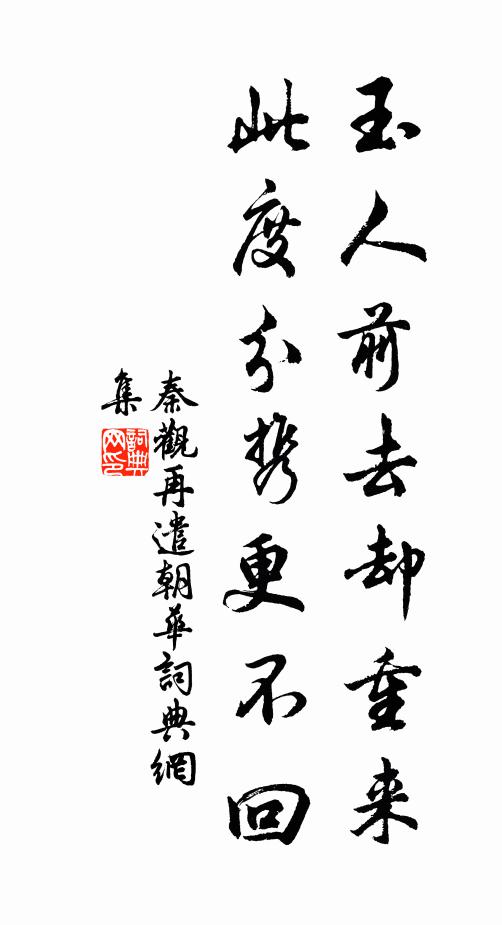 玉人前去却重来
此度分携更不回
秦觀再遣朝華詞典網
集
詞典
网印